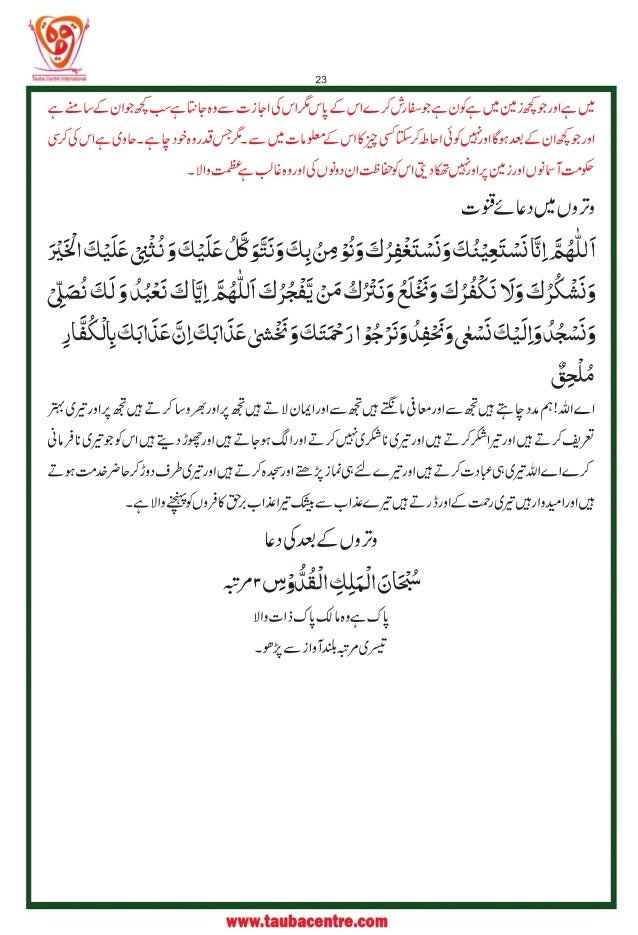 Tauba Centre International
23
میں ہے اور جو کچھ زمین میں ہے کون ہے جو سفارش کرے اس کے پاس مگر اس کی اجازت سے وہ جانتا ہے سب کچھ جو ان کے سامنے ہے
اور جو کچھ ان کے بعد ہوگا اور نہیں کوئی احاطہ کر سکتا کسی چیز کا اس کے معلومات میں سے ۔ مگر جس قدر وہ خود چاہے ۔ حاوی ہے اس کی کرسی
حکومت آسمانوں اور زمین پر اور نہیں تھکا دیتی اس کو حفاظت ان دونوں کی اور وہ غالب ہے عظمت والا ۔
وتروں میں دعائے قنوت
اَللّٰهُمَّ اِنَّا نَسْتَعِيْنُكَ وَنَسْتَغْفِرُكَ وَنُوْ مِنُ بِكَ وَنَتَوَكَّلُ عَلَيْكَ وَ نُثْنِيْ عَلَيْكَ الْخَيْرَ
وَنَشْكُرُكَ وَلَا نَكْفُرُكَ وَنَخْلَعُ وَنَتْرُكُ مَنْ يَّفْجُرُكَ اَللّٰهُمَّ اِيَّاكَ نَعْبُدُ وَ لَكَ نُصَلِّيْ
وَنَسْجُدُ وَاِلَيْكَ نَسْعٰى وَنَحْفِدُ وَنَرْجُوْا رَحْمَتَكَ وَنَخْشٰى عَذَابَكَ اِنَّ عَذَابَكَ بِالْكُفَّارِ
مُلْحِقٌ
اے اللہ! ہم مدد چاہتے ہیں تجھ سے اور معافی مانگتے ہیں تجھ سے اور ایمان لاتے ہیں تجھ پر اور بھروسا کرتے ہیں تجھ پر اور تیری بہتر
تعریف کرتے ہیں اور تیرا شکر کرتے ہیں اور تیری ناشکری نہیں کرتے اور الگ ہو جاتے ہیں اور چھوڑ دیتے ہیں اس کو جو تیری نافرمانی
کرے اے اللہ تیری ہی عبادت کرتے ہیں اور تیرے لئے ہی نماز پڑھتے اور سجدہ کرتے ہیں اور تیری طرف دوڑ کر حاضر خدمت ہوتے
ہیں اور امیدوار ہیں تیری رحمت کے اور ڈرتے ہیں تیرے عذاب سے بیشک تیرا عذاب برحق کافروں کو پہنچنے والا ہے ۔
وتروں کے بعد کی دعا
سُبْحَانَ الْمَلِكِ الْقُدُّوْسِ ۳ مرتبہ
پاک ہے وہ مالک پاک ذات والا
تیسری مرتبہ بلند آواز سے پڑھو ۔
www.taubacentre.com